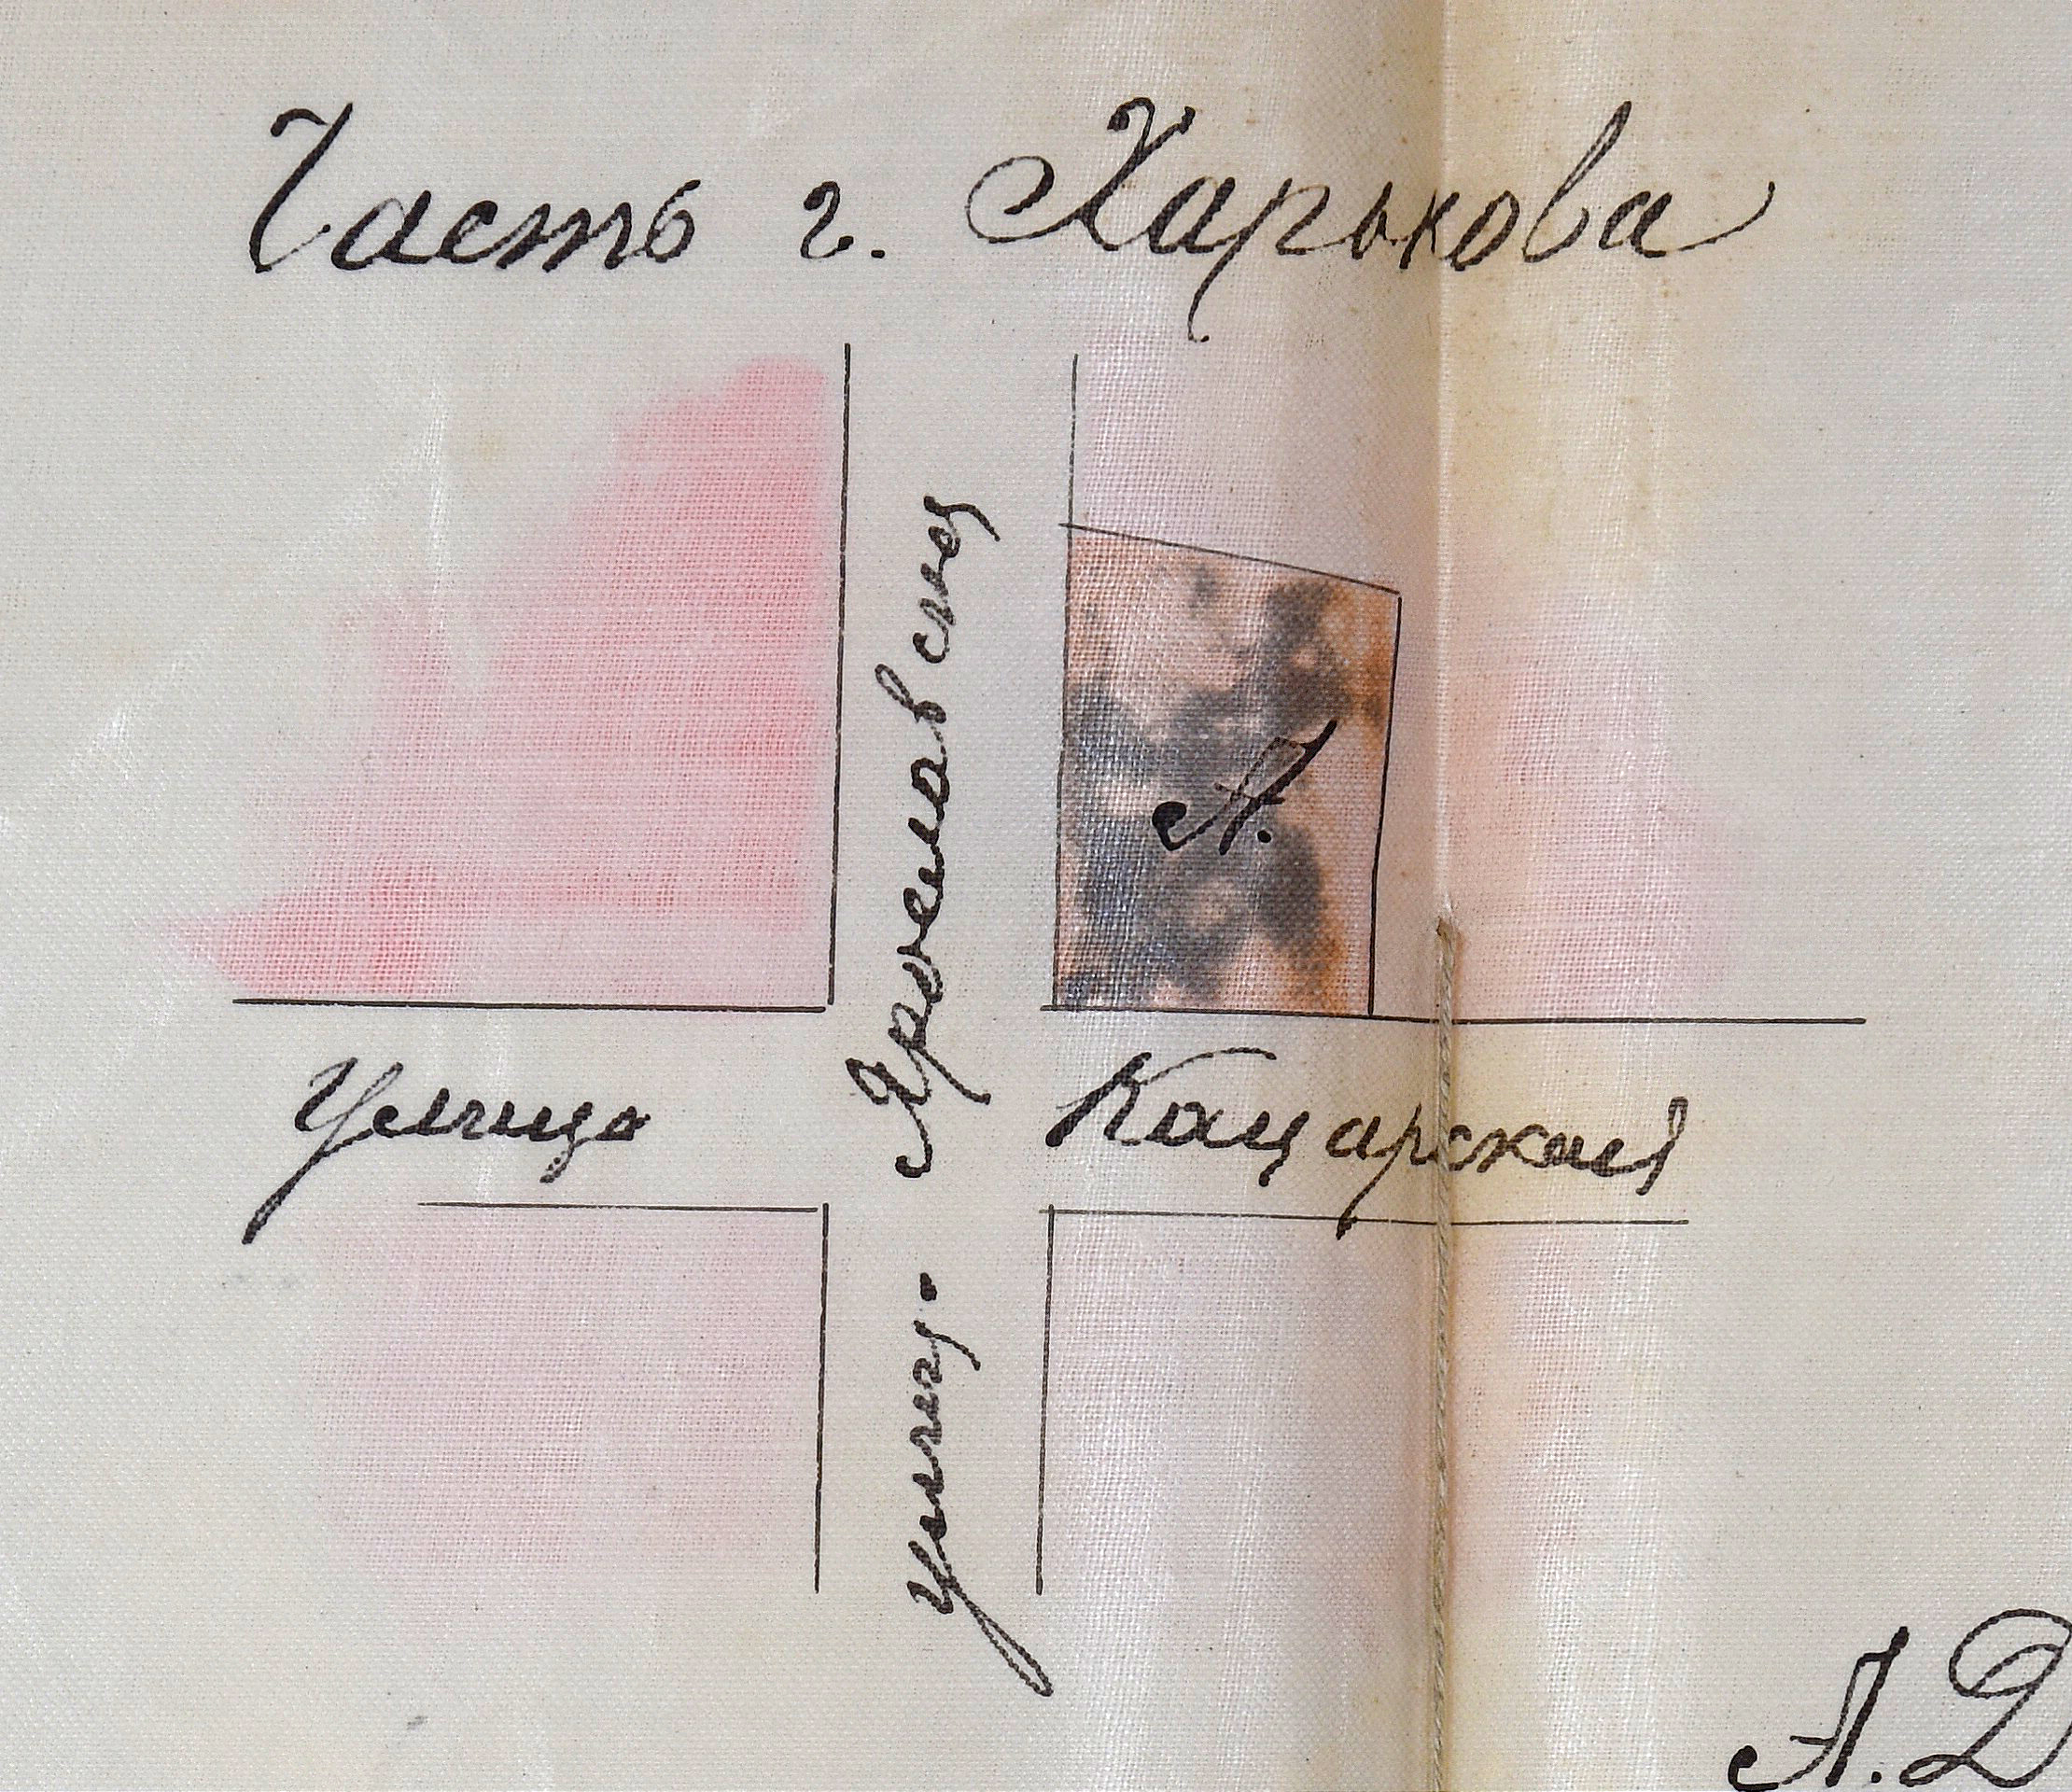 Часть г. Харькова
Ярославская
А.
Улица
Кацарская
улица.
А. Д